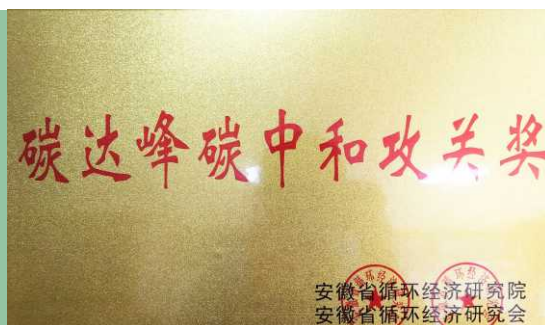 碳达峰碳中和攻关奖
安徽省循环经济研究院
安徽省循环经济研究会